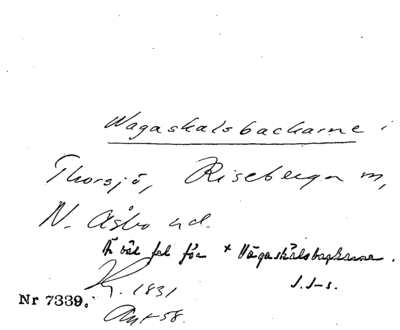 Wagaskalsbackarne i
Thorsjö, Riseberga m,
N. Åsbo hd.
Är väl fel för + Vågaskålsbackarna.
J. J-s.
K. 1831
Nr 7339.
Ant 58.